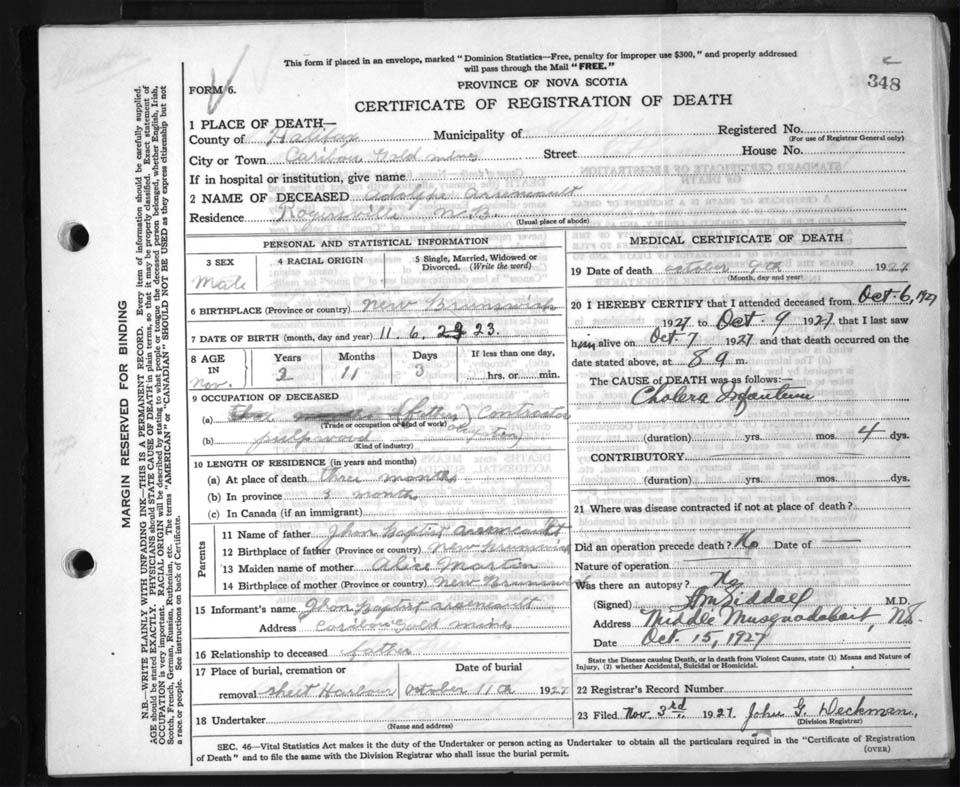 This form if placed in an envelope, marked "Dominion Statistics—Free, penalty for improper use $300," and properly addressed
will pass through the Mail "FREE."
348
FORM 6.
PROVINCE OF NOVA SCOTIA
CERTIFICATE OF REGISTRATION OF DEATH
MARGIN RESERVED FOR BINDING
N.B.—WRITE PLAINLY WITH UNFADING INK—THIS IS A PERMANENT RECORD. Every item of information should be carefully supplied.
AGE should be stated EXACTLY. PHYSICIANS should STATE CAUSE OF DEATH in plain terms, so that it may be properly classified. Exact statement of
OCCUPATION is very important. RACIAL ORIGIN will be described by stating to what people or tongue the deceased person belonged, whether English, Irish,
Scotch, French, German, Russian, Ruthenian, etc. The terms "AMERICAN" or "CANADIAN" SHOULD NOT BE USED as they express citizenship but not
a race or people. See instructions on back of Certificate.
1 PLACE OF DEATH—
County of Halifax Municipality of Registered No.
(For use of Registrar General only)
City or Town Caribou Gold mines Street House No.
If in hospital or institution, give name
2 NAME OF DECEASED Adolphe Arseneault
Residence Rogersville N.B.
(Usual place of abode)
PERSONAL AND STATISTICAL INFORMATION
3 SEX 4 RACIAL ORIGIN 5 Single, Married, Widowed or
Divorced. (Write the word)
Male
6 BIRTHPLACE (Province or country) New Brunswick
7 DATE OF BIRTH (month, day and year) 11. 6. 23.
8 AGE Years Months Days If less than one day,
Nov. 2 11 3 hrs. or min.
9 OCCUPATION OF DECEASED
(a) (father) Contractor
(Trade or occupation or kind of work)
(b) pulpwood
(Kind of industry)
10 LENGTH OF RESIDENCE (in years and months)
(a) At place of death three months
(b) In province 3 month
(c) In Canada (if an immigrant)
Parents
11 Name of father Jhon Baptist arseneault
12 Birthplace of father (Province or country) New Brunswick
13 Maiden name of mother Alice Martin
14 Birthplace of mother (Province or country) New Brunswick
15 Informant's name Jhon Baptist arseneault
Address Caribou Gold mines
16 Relationship to deceased father
17 Place of burial, cremation or Date of burial
removal Sheet Harbour October 11th 1927
18 Undertaker
(Name and address)
MEDICAL CERTIFICATE OF DEATH
19 Date of death october 9th 1927
(Month, day and year)
20 I HEREBY CERTIFY that I attended deceased from Oct. 6, 1927
1927 to Oct. 9 1927 that I last saw
him alive on Oct. 7 1927 and that death occurred on the
date stated above, at 8 a m.
The CAUSE OF DEATH was as follows:—
Cholera Infantum
(duration) yrs. mos. 4 dys.
CONTRIBUTORY
(duration) yrs. mos. dys.
21 Where was disease contracted if not at place of death?
Did an operation precede death? No Date of
Nature of operation
Was there an autopsy? No
(Signed) M.D.
Address Middle Musquodoboit, NS.
Date Oct. 15, 1927
State the Disease causing Death, or in death from Violent Causes, state (1) Means and Nature of
Injury, (2) whether Accidental, Suicidal or Homicidal.
22 Registrar's Record Number
23 Filed Nov. 3rd, 1927 John G. Deckman,
(Division Registrar)
SEC. 46—Vital Statistics Act makes it the duty of the Undertaker or person acting as Undertaker to obtain all the particulars required in the "Certificate of Registration
of Death" and to file the same with the Division Registrar who shall issue the burial permit.
(OVER)